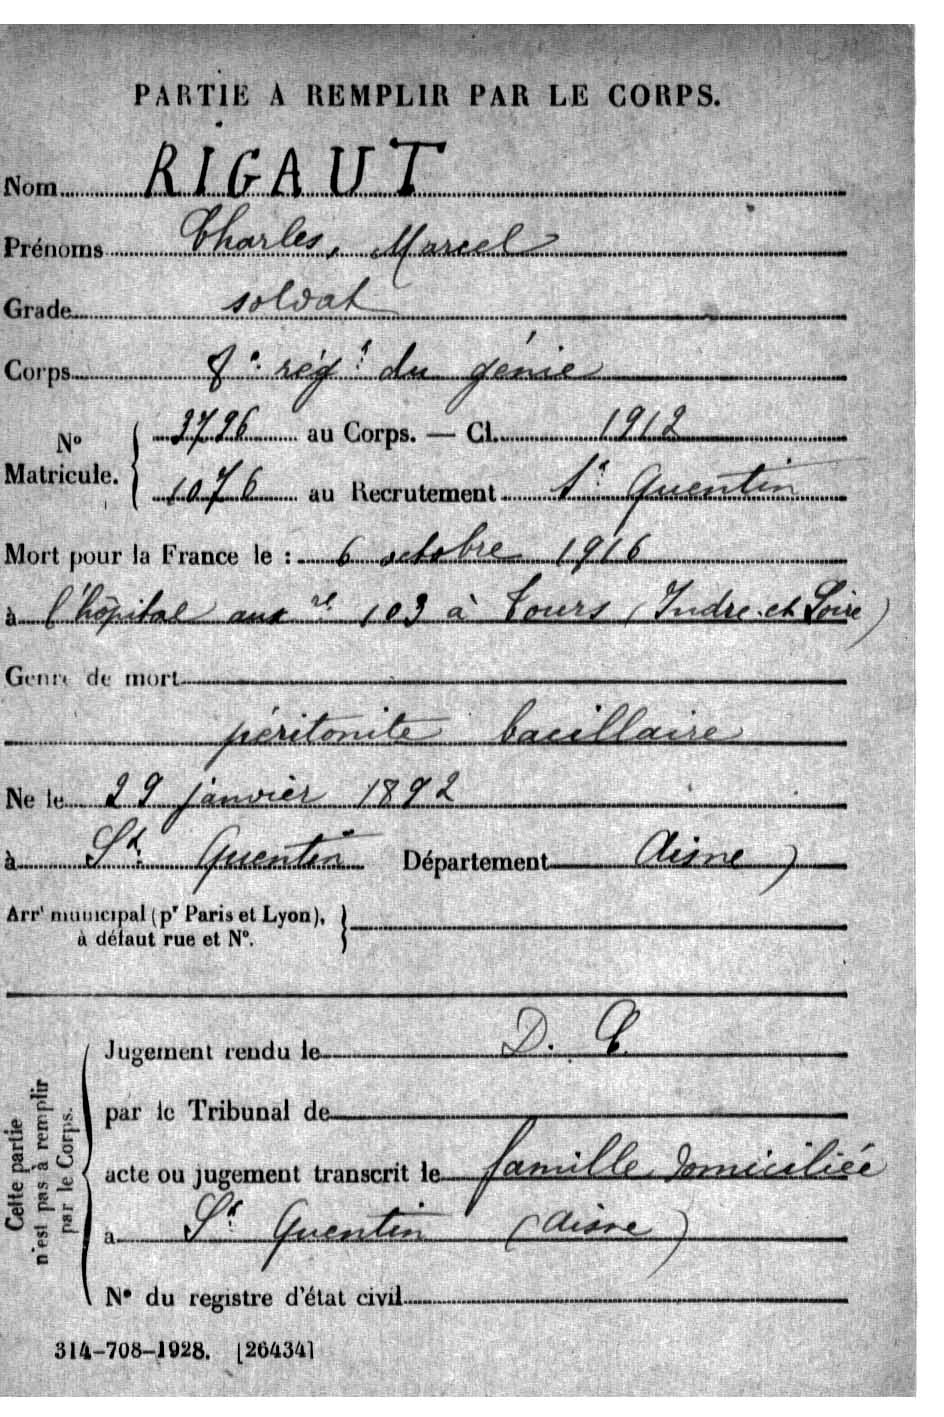 PARTIE À REMPLIR PAR LE CORPS.
Nom RIGAUT
Prénoms Charles, Marcel
Grade soldat
Corps 8e régt du génie
No Matricule. 3796 au Corps. — Cl. 1912
1076 au Recrutement St Quentin
Mort pour la France le : 6 octobre 1916
à l'hôpital auxre 103 à Tours (Indre-et-Loire)
Genre de mort
péritonite bacillaire
Né le 29 janvier 1892
à St Quentin Département Aisne )
Arrt municipal (pr Paris et Lyon),
à défaut rue et No.
Cette partie
n'est pas à remplir
par le Corps.
Jugement rendu le D. C.
par le Tribunal de
acte ou jugement transcrit le famille domiciliée
à St Quentin (Aisne)
No du registre d'état civil
314-708-1928. [26434]